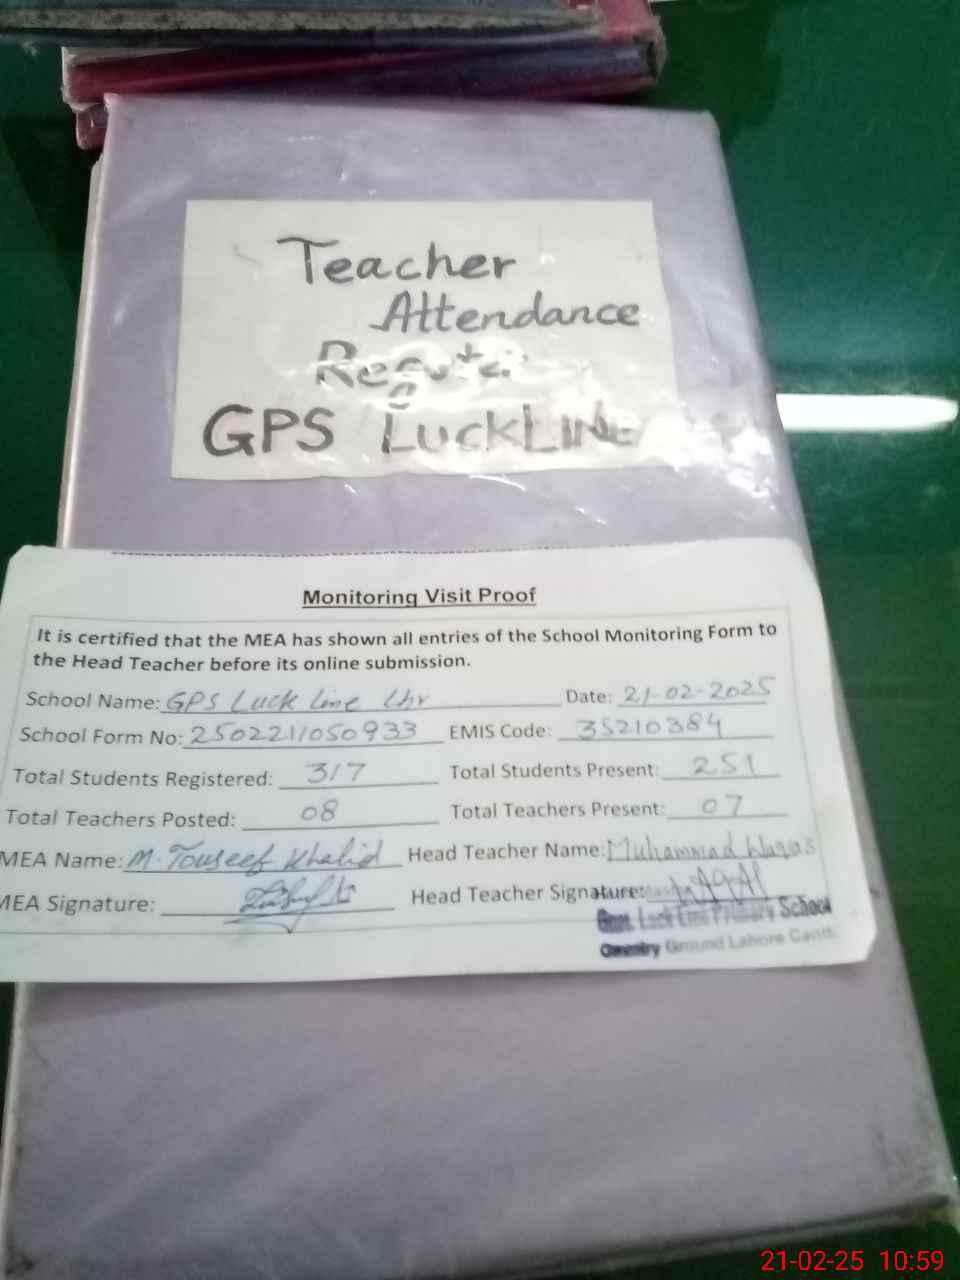 Teacher
Attendance
GPS LUCKLINE
Monitoring Visit Proof
It is certified that the MEA has shown all entries of the School Monitoring Form to
the Head Teacher before its online submission.
School Name: GPS Luck Line Lhr Date: 21-02-2025
School Form No: 2502211050933 EMIS Code: 35210384
Total Students Registered: 317 Total Students Present: 251
Total Teachers Posted: 08 Total Teachers Present: 07
MEA Name: M. Touseef Khalid Head Teacher Name: Muhammad Waqas
MEA Signature: Head Teacher Signature:
Govt. Luck Line Primary School
Ground Lahore Cantt.
21-02-25 10:59